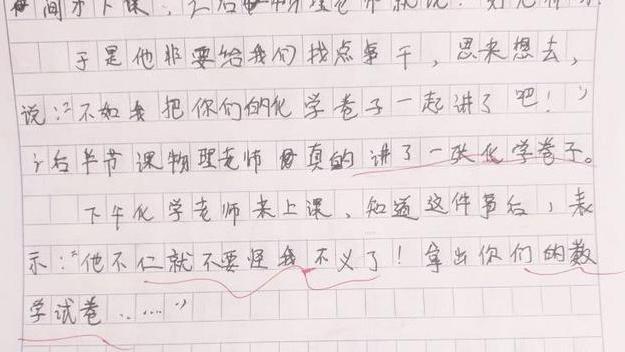 间才下课，之后
于是他非要给我们找点事干，思来想去，
说："不如我把你们的化学卷子一起讲了吧！"
后半节课物理老师真的讲了一张化学卷子。
下午化学老师来上课，知道这件事后，表
示："他不仁就不要怪我不义了！拿出你们的数
学试卷……"